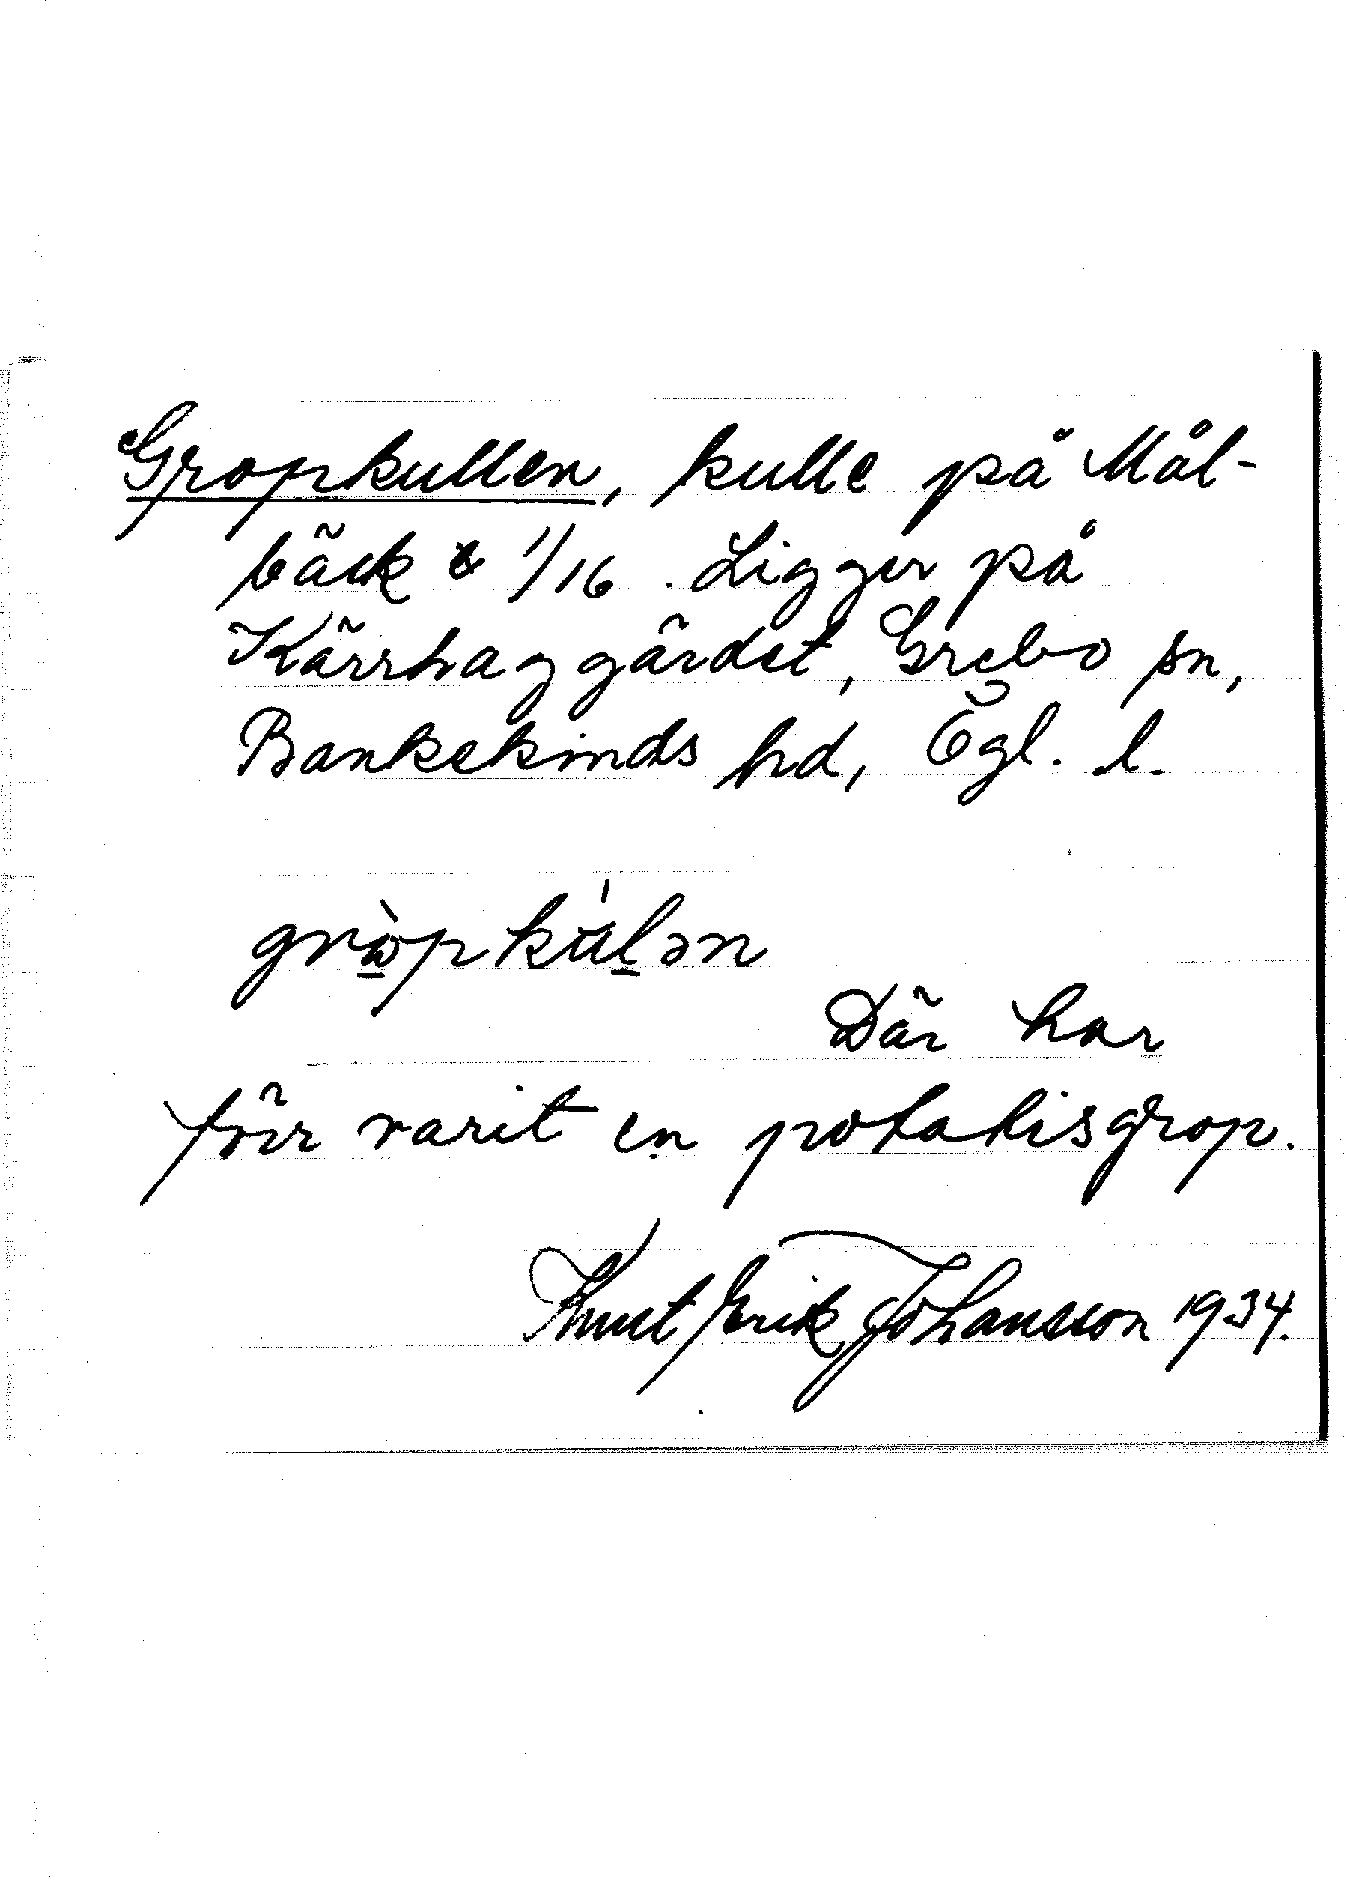 Gropkullen, kulle på Mål-
bäck 1/16. Ligger på
Kärrhaggärdet, Grebo sn,
Bankekinds hd, Ögl. l.
Där har
förr varit en potatisgrop.
Knut Erik Johansson 1934.